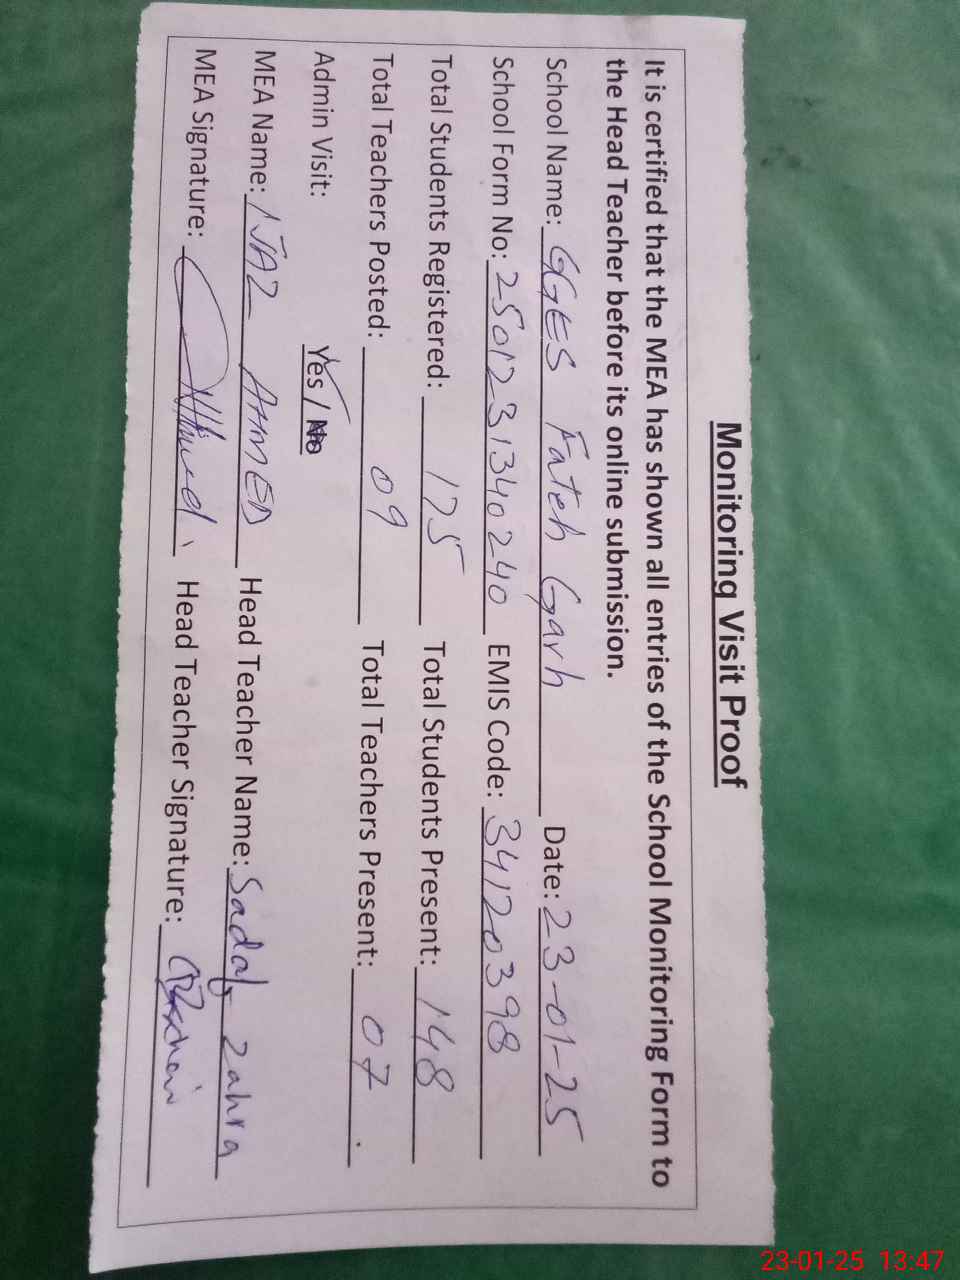 Monitoring Visit Proof
It is certified that the MEA has shown all entries of the School Monitoring Form to
the Head Teacher before its online submission.
School Name: GGES Fateh Garh Date: 23-01-25
School Form No: 2501231340240 EMIS Code: 34120398
Total Students Registered: 175 Total Students Present: 148
Total Teachers Posted: 09 Total Teachers Present: 07
Admin Visit: Yes / No
MEA Name: IJAZ AHMED Head Teacher Name: Sadaf Zahra
MEA Signature: Head Teacher Signature:
23-01-25 13:47